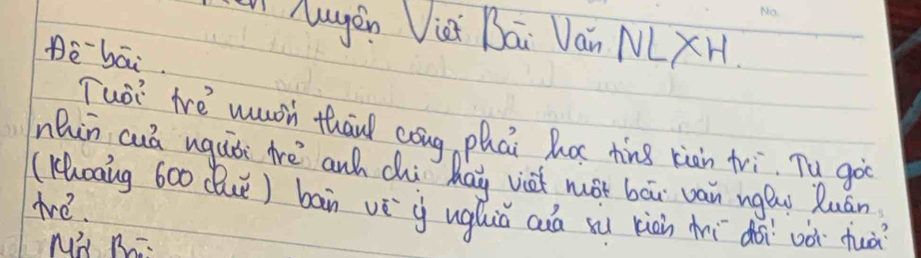 Luyện Viết Bài Văn NLXH.
Đề bài.
Tuổi trẻ muốn thành công phải học tính kiên trì. Từ góc
nhìn của người trẻ anh chị hãy viết một bài văn nghị luận
(Khoảng 600 chữ) bàn về ý nghĩa của sự kiên trì đối với tuổi
trẻ.